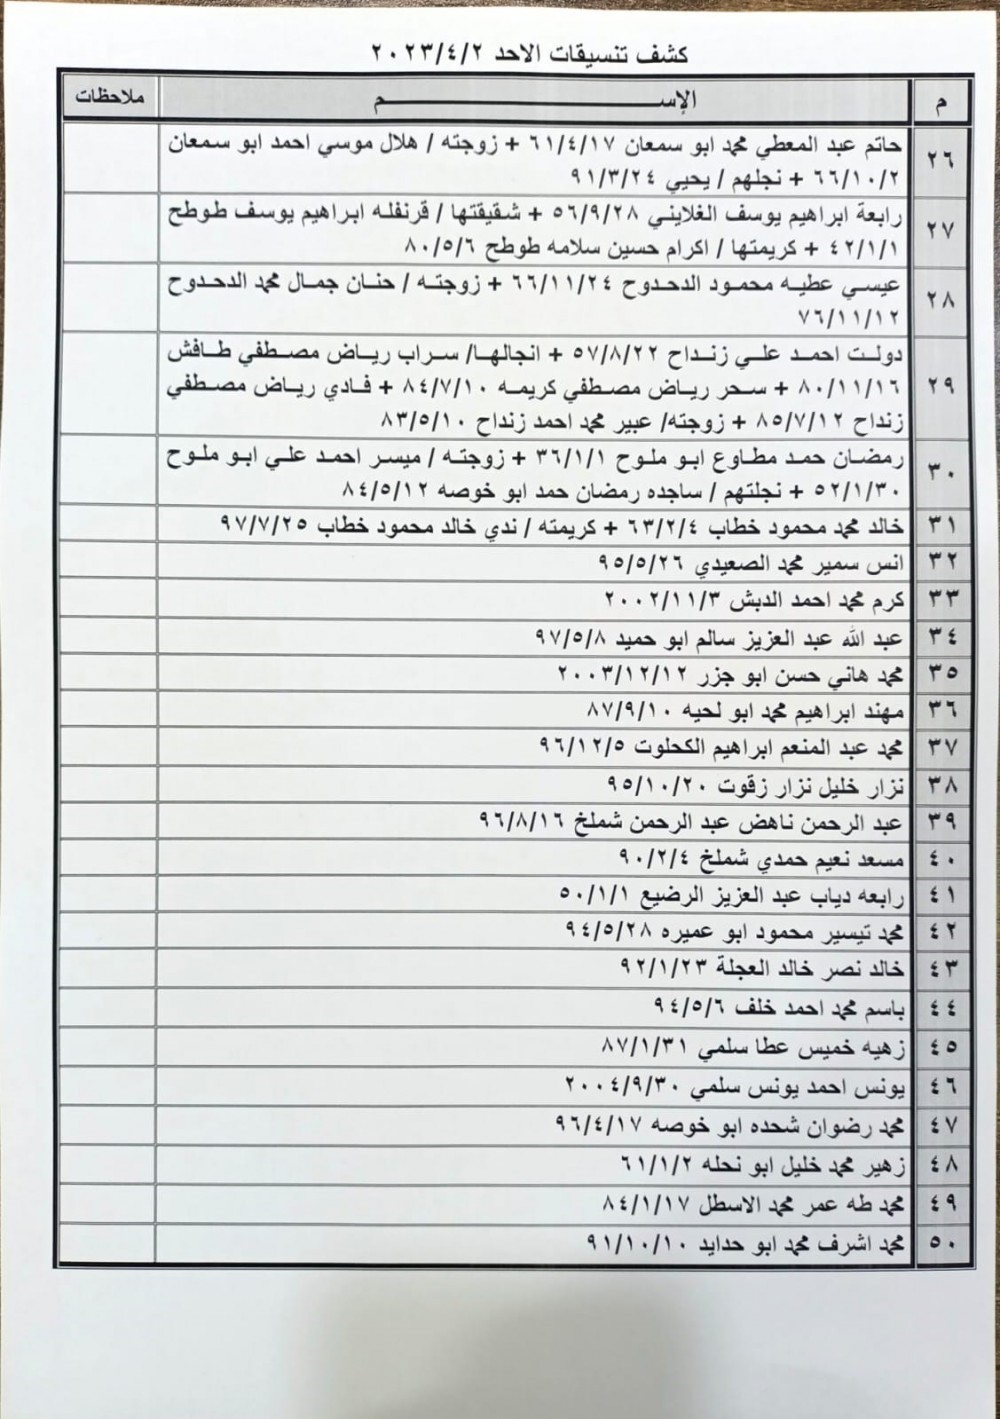 كشف تنسيقات الاحد ٢٠٢٣/٤/٢
م الإســـــم ملاحظات
٢٦ حاتم عبد المعطي محمد ابو سمعان ٦١/٤/١٧ + زوجته / هلال موسي احمد ابو سمعان
٦٦/١٠/٢ + نجلهم / يحيي ٩١/٣/٢٤
٢٧ رابعة ابراهيم يوسف الغلايني ٥٦/٩/٢٨ + شقيقتها / قرنفله ابراهيم يوسف طوطح
٤٢/١/١ + كريمتها / اكرام حسين سلامه طوطح ٨٠/٥/٦
٢٨ عيسي عطيه محمود الدحدوح ٦٦/١١/٢٤ + زوجته / حنان جمال محمد الدحدوح
٧٦/١١/١٢
٢٩ دولت احمد علي زنداح ٥٧/٨/٢٢ + انجالها/ سراب رياض مصطفي طافش
٨٠/١١/١٦ + سحر رياض مصطفي كريمه ٨٤/٧/١٠ + فادي رياض مصطفي
زنداح ٨٥/٧/١٢ + زوجته/ عبير محمد احمد زنداح ٨٣/٥/١٠
٣٠ رمضان حمد مطاوع ابو ملوح ٣٦/١/١ + زوجته / ميسر احمد علي ابو ملوح
٥٢/١/٣٠ + نجلتهم / ساجده رمضان حمد ابو خوصه ٨٤/٥/١٢
٣١ خالد محمد محمود خطاب ٦٣/٢/٤ + كريمته / ندي خالد محمود خطاب ٩٧/٧/٢٥
٣٢ انس سمير محمد الصعيدي ٩٥/٥/٢٦
٣٣ كرم محمد احمد الدبش ٢٠٠٢/١١/٣
٣٤ عبد الله عبد العزيز سالم ابو حميد ٩٧/٥/٨
٣٥ محمد هاني حسن ابو جزر ٢٠٠٣/١٢/١٢
٣٦ مهند ابراهيم محمد ابو لحيه ٨٧/٩/١٠
٣٧ محمد عبد المنعم ابراهيم الكحلوت ٩٦/١٢/٥
٣٨ نزار خليل نزار زقوت ٩٥/١٠/٢٠
٣٩ عبد الرحمن ناهض عبد الرحمن شملخ ٩٦/٨/١٦
٤٠ مسعد نعيم حمدي شملخ ٩٠/٢/٤
٤١ رابعه دياب عبد العزيز الرضيع ٥٠/١/١
٤٢ محمد تيسير محمود ابو عميره ٩٤/٥/٢٨
٤٣ خالد نصر خالد العجلة ٩٢/١/٢٣
٤٤ باسم محمد احمد خلف ٩٤/٥/٦
٤٥ زهيه خميس عطا سلمي ٨٧/١/٣١
٤٦ يونس احمد يونس سلمي ٢٠٠٤/٩/٣٠
٤٧ محمد رضوان شحده ابو خوصه ٩٦/٤/١٧
٤٨ زهير محمد خليل ابو نحله ٦١/١/٢
٤٩ محمد طه عمر محمد الاسطل ٨٤/١/١٧
٥٠ محمد اشرف محمد ابو حدايد ٩١/١٠/١٠